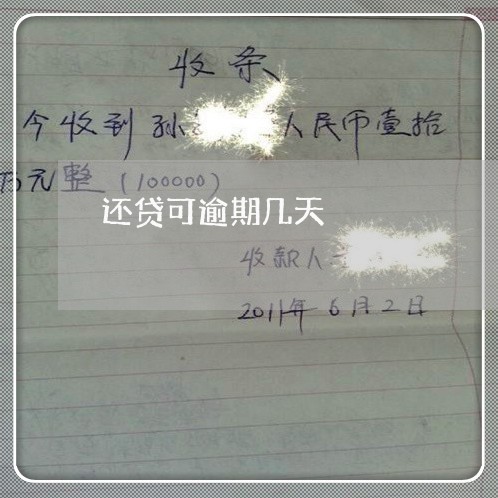 收条
今收到孙 人民币壹拾
万元整(100000)
还贷可逾期几天
收款人
2011年6月2日